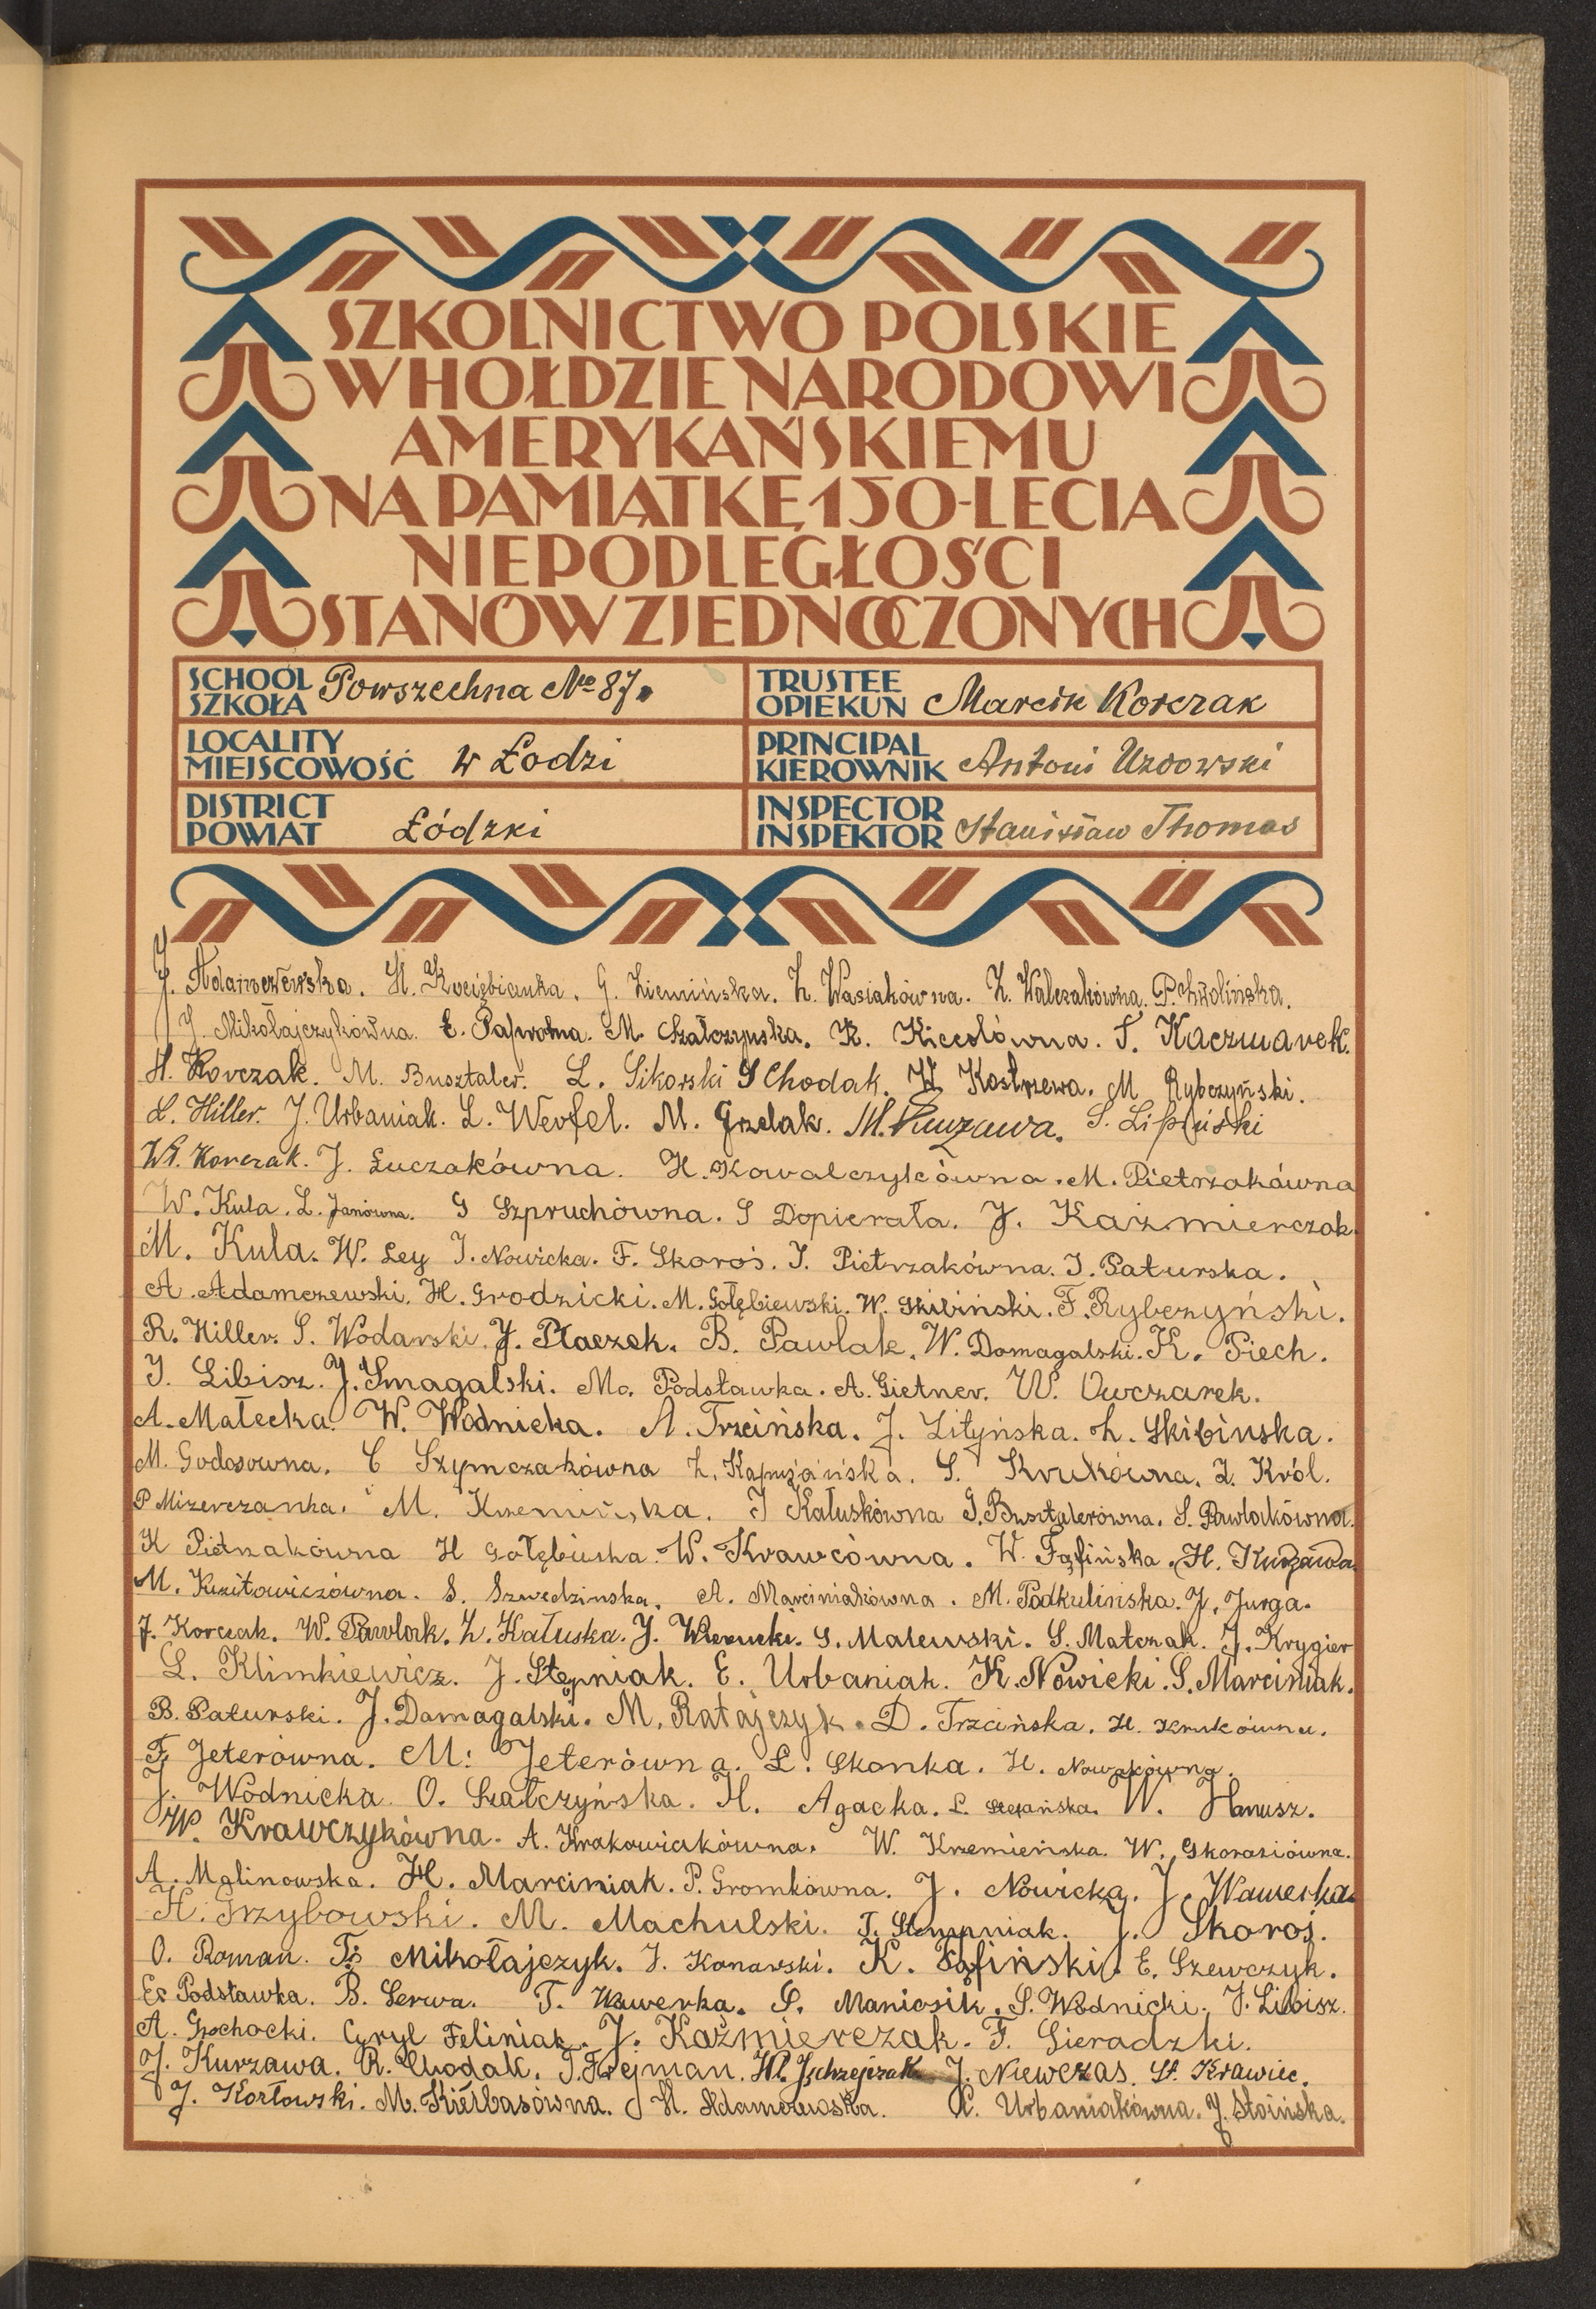 SZKOLNICTWO POLSKIE
W HOŁDZIE NARODOWI
AMERYKAŃSKIEMU
NA PAMIĄTKĘ 150-LECIA
NIEPODLEGŁOŚCI
STANÓW ZJEDNOCZONYCH
SCHOOL SZKOŁA Powszechna № 87.
TRUSTEE OPIEKUN Marcin Korczak
LOCALITY MIEJSCOWOŚĆ w Łodzi
PRINCIPAL KIEROWNIK Antoni Uzdowski
DISTRICT POWIAT Łódzki
INSPECTOR INSPEKTOR Stanisław Thomas
J. Adamczewska. H. G. Ziemińska. Z. Wasiakówna. Z. Walczakówna. P. Chwolińska.
J. Mikołajczykówna. E. M. Szałczyńska. K. Kiecolówna. T. Kaczmarek.
H. Korczak. M. Busztaler. L. Sikorski S Chodak. W Kostrzewa. M Rybczyński.
L. Hiller. J. Urbaniak. L. Weofel. M. Grzelak. M. Kurzawa. S. Lipiński
Wł. Korczak. J. Łuczakówna. H. Kowalczykówna. M. Pietrzakówna
W. Kula. L. Janówna. G Szpruchówna. S Dopierała. J. Kaźmierczak.
M. Kula. W. Ley J. Nowicka. F. Skoroś. J. Pietrzakówna. J. Paturska.
A. Adamczewski. H. Grodzicki. M. Gołębiewski. W. Skibiński. F. Rybczyński.
R. Hiller. S. Wodarski. J. Płaczek. B. Pawlak. W. Domagalski. K. Piech.
J. Libisz. J. Smagalski. M. Podstawka. A. Gietner. W. Owczarek.
A. Małecka. W. Wodnicka. A. Trzcińska. J. Lityńska. L. Skibińska.
M. Godosowna. C Szymczakówna Z. S. Krukówna. Z. Król.
P Mizerczanka. M. Krzemińska. J Kałuskówna G. Busztalerówna. S. Pawlakówna.
K Pietrzakówna H Gołębiuska. W. Krawcówna. W. Fąfińska. H. Kurzawa.
M. S. Szwedzinska. A. Marciniakówna. M. Podkulińska. J. Jurga.
J. Korczak. W. Pawlak. Z. Kałuska. J. Wierucki. S. Malewski. S. Matczak. J. Krygier
L. Klimkiewicz. J. Stępniak. E. Urbaniak. K. Nowicki. S. Marciniak.
B. Paturski. J. Domagalski. M. Ratajczyk. D. Trzcińska. H. Krukówna.
F. Jeterówna. M. Jeterówna. L. Skonka. H. Nowakówna.
J. Wodnicka. O. Szałczyńska. H. Agacka. L. W. Hanusz.
W. Krawczykówna. A. Krakowiakówna. W. Krzemieńska. W. Skorasiówna.
A. Malinowska. H. Marciniak. P. Gromkówna. J. Nowicka. J. Wawerka.
H. Grzybowski. M. Machulski. T. Stempniak. J. Skoroś.
O. Roman. T. Mikołajczyk. J. Konarski. K. Fąfiński. E. Szewczyk.
E. Podstawka. B. Serwa. T. Wawerka. S. Maniosik. S. Wodnicki. J. Libisz.
A. Grochocki. Cyryl Feliniak. J. Kaźmierczak. F. Sieradzki.
J. Kurzawa. R. Chodak. T. Frejman. J. Niewczas. St. Krawiec.
J. Kozłowski. M. Kiełbasówna. H. Adamowska. C. Urbaniakówna. J. Słoińska.